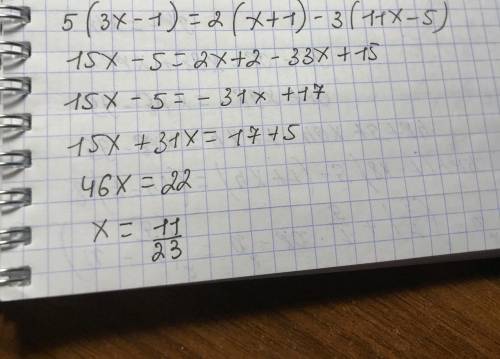 5(3x-1)=2(x+1)-3(11x-5)
15x-5=2x+2-33x+15
15x-5=-31x+17
15x+31x=17+5
46x=22
x=11/23